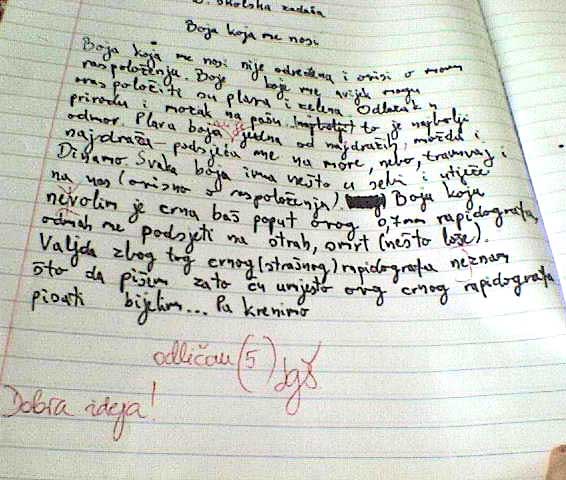 školska zadaća
Boja koja me nosi
Boja koja me nosi nije određena i ovisi o mom
raspoloženju. Boje koje me uvijek mogu
oraspoložiti su plava i zelena. Odlazak u
prirodu i mozak na pašu (najbolji) to je najbolji
odmor. Plava boja je jedna od najdražih, možda i
najdraža - podsjeća me na more, nebo, tramvaj i
Dinamo. Svaka boja ima nešto u sebi i utječe
na nas (ovisno o raspoloženju). Boja koju
nevolim je crna baš poput ovog 0,7mm rapidografa,
odmah me podsjeti na strah, smrt (nešto loše).
Valjda zbog tog crnog (strašnog) rapidografa neznam
što da pišem zato ću umjesto ovog crnog rapidografa
pisati bijelim... Pa krenimo
odličan (5)
Dobra ideja!